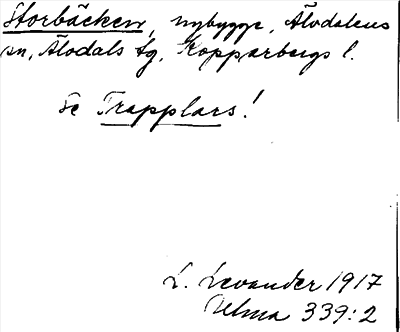 Storbäcken, nybygge, Älvdalens
sn, Älvdals tg, Kopparbergs l.
Se Trapplars!
L. Levander 1917
Ulma 339:2